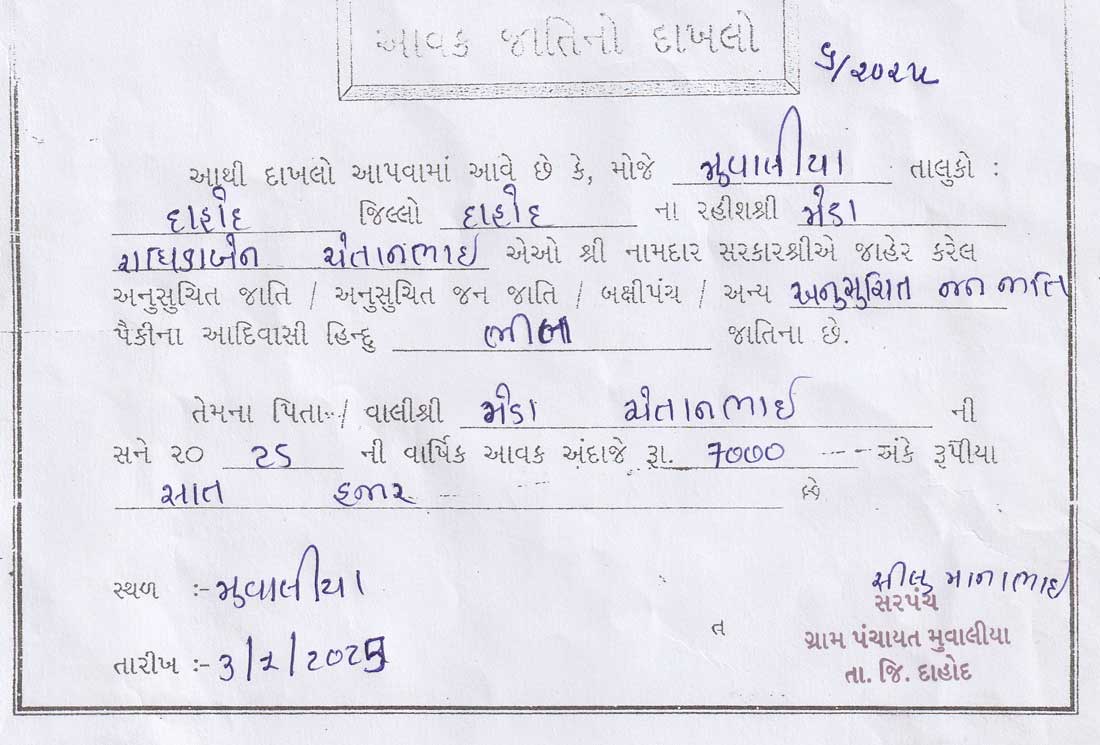 આવક જાતિનો દાખલો
૬/૨૦૨૫
આથી દાખલો આપવામાં આવે છે કે, મોજે મુવાલીયા તાલુકો :
દાહોદ જિલ્લો દાહોદ ના રહીશશ્રી મેડા
રાધિકાબેન ચેતાનભાઈ એઓ શ્રી નામદાર સરકારશ્રીએ જાહેર કરેલ
અનુસુચિત જાતિ / અનુસુચિત જન જાતિ / બક્ષીપંચ / અન્ય અનુસુચિત જન જાતિ
પૈકીના આદિવાસી હિન્દુ ભીલ જાતિના છે.
તેમના પિતા / વાલીશ્રી મેડા ચેતાનભાઈ ની
સને ૨૦ ની વાર્ષિક આવક અંદાજે રૂા. 7000 અંકે રૂપીયા
સાત હજાર છે
સ્થળ :- મુવાલીયા
તારીખ :- 3/7/2025
ત
માનાભાઈ
સરપંચ
ગ્રામ પંચાયત મુવાલીયા
તા. જિ. દાહોદ